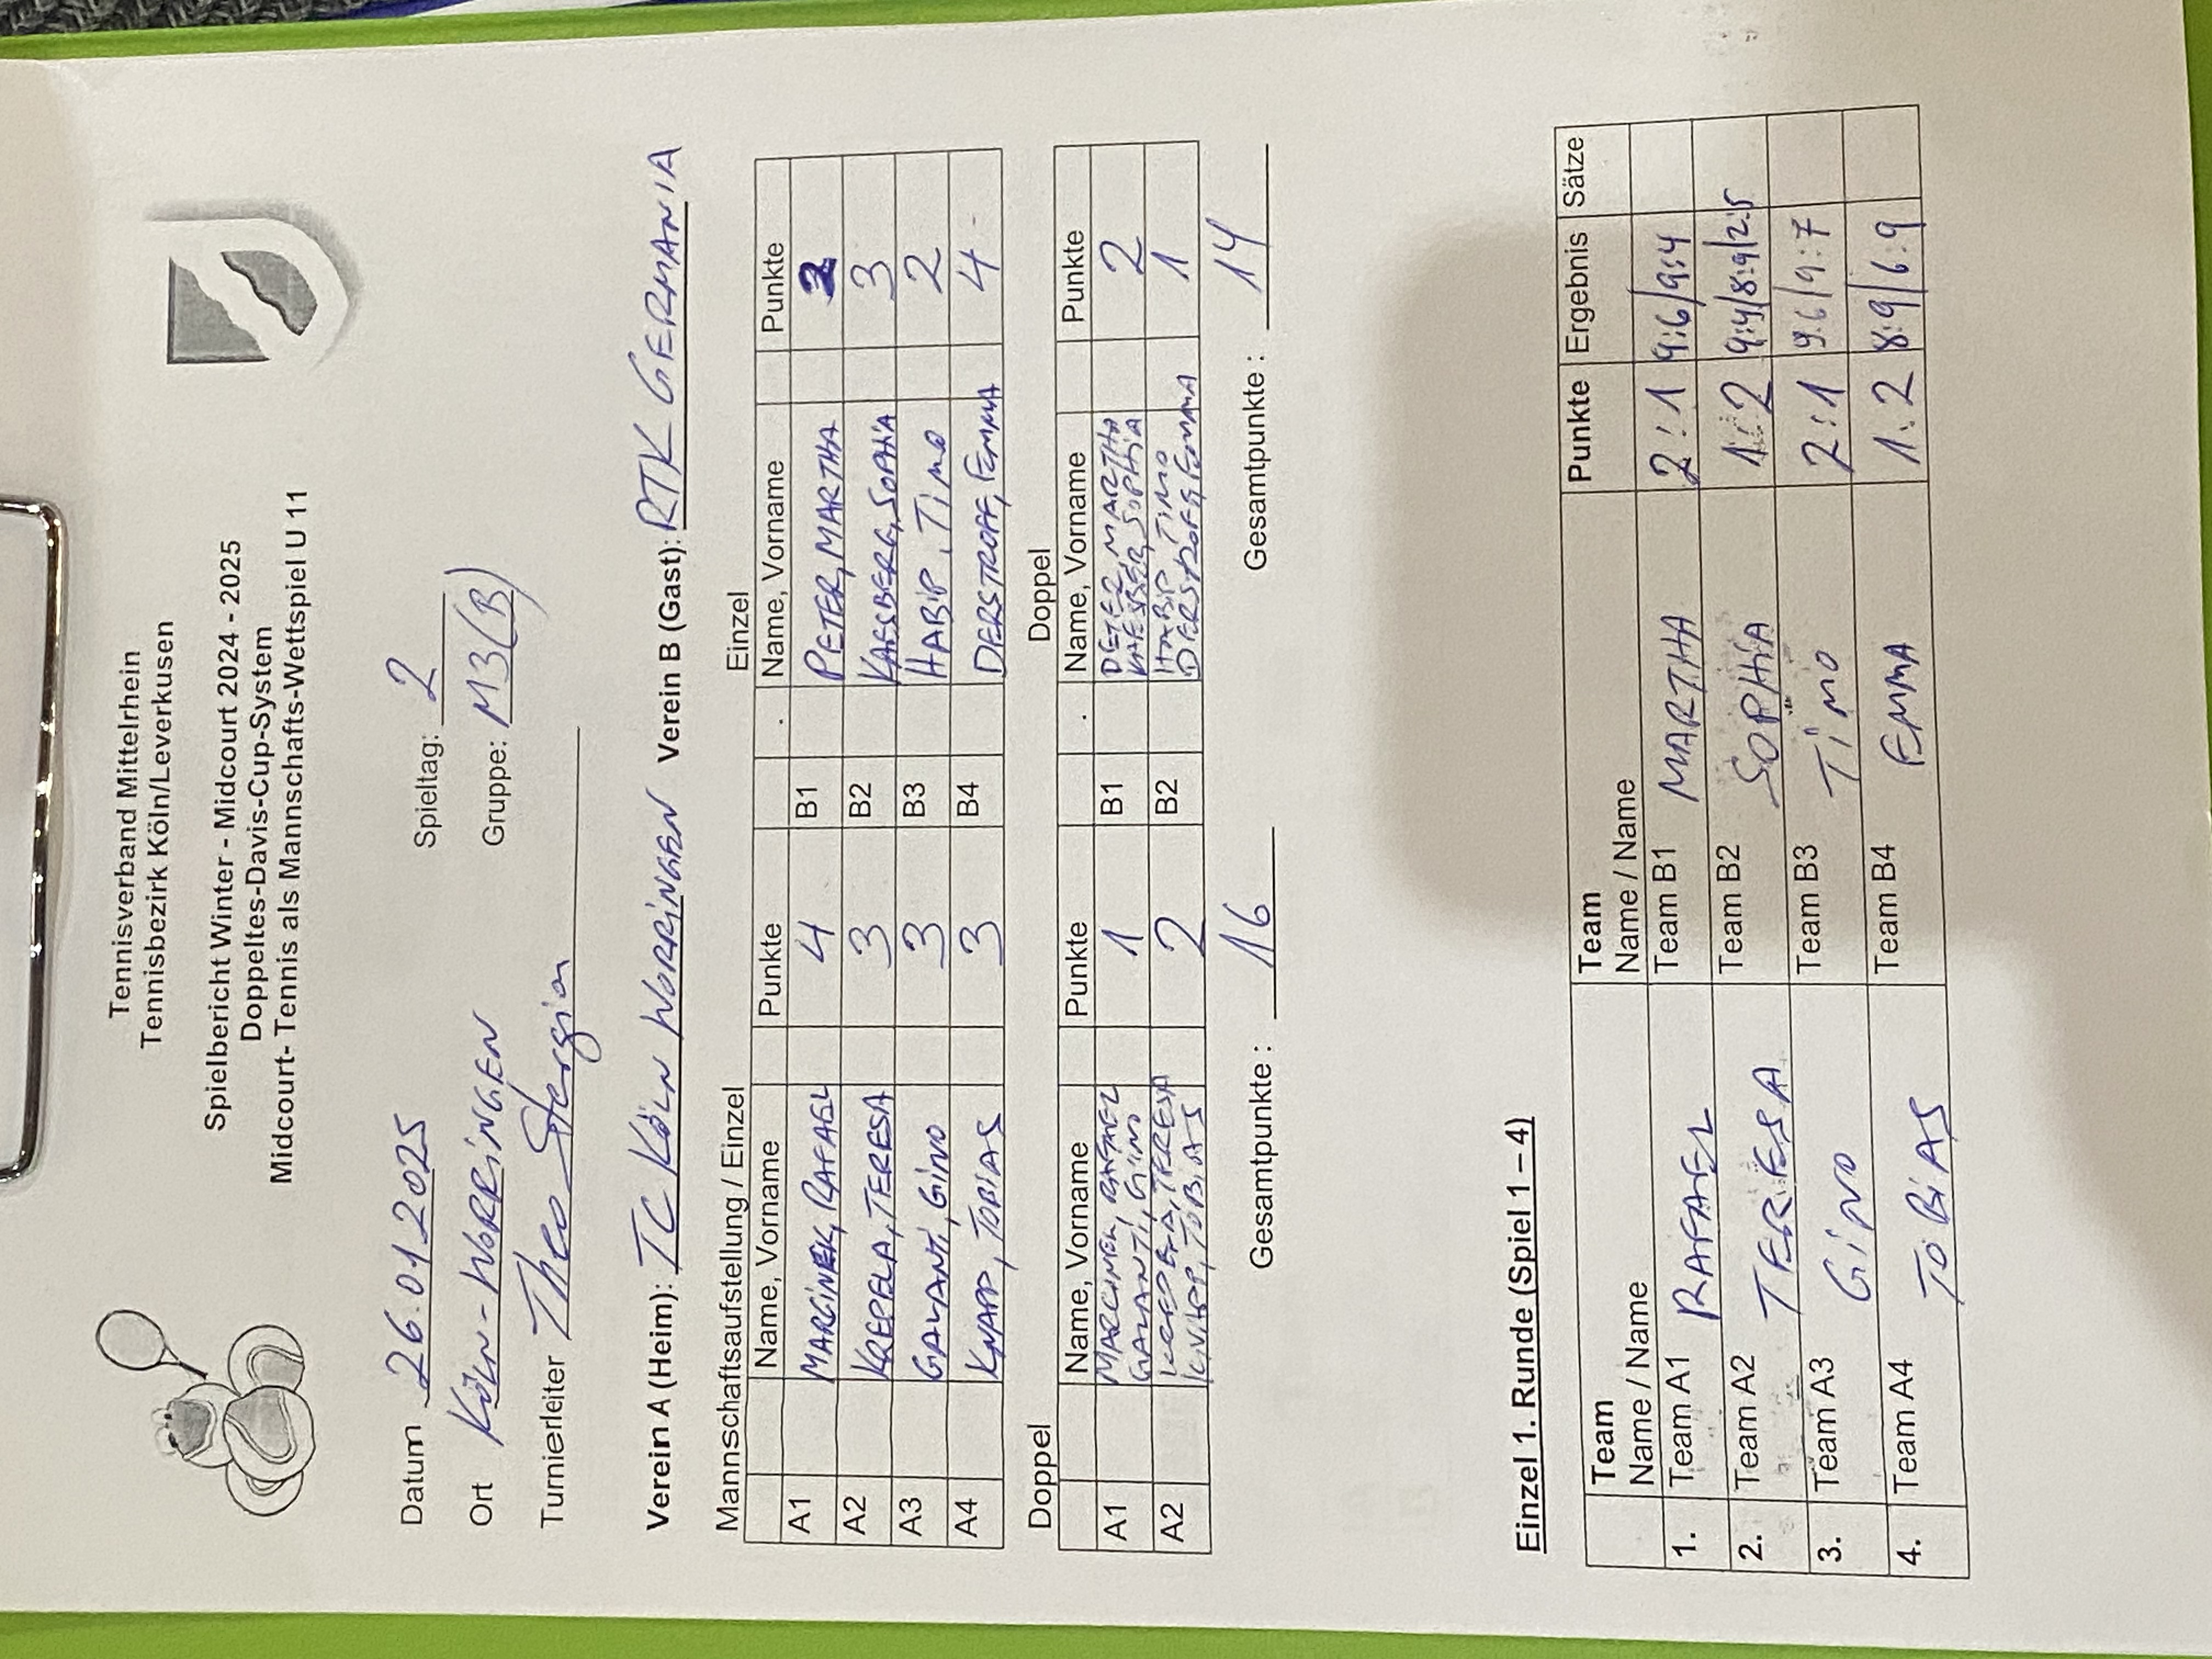 Tennisverband Mittelrhein
Tennisbezirk Köln/Leverkusen
Spielbericht Winter - Midcourt 2024 - 2025
Doppeltes-Davis-Cup-System
Midcourt- Tennis als Mannschafts-Wettspiel U 11
Datum 26.01.2025 Spieltag: 2
Ort KÖLN-WORRINGEN Gruppe: M3(B)
Turnierleiter Theo
Verein A (Heim): TC KÖLN WORRINGEN Verein B (Gast): RTK GERMANIA
Mannschaftsaufstellung / Einzel Einzel
Name, Vorname Punkte Name, Vorname Punkte
A1 RAFAEL 4 B1 PETER, MARTHA 2
A2 KREPELA, TERESA 3 B2 KAESBERG, SOPHIA 3
A3 GALANTI, GINO 3 B3 HABIP, TIMO 2
A4 KNAPP, TOBIAS 3 B4 DERSTROFF, EMMA 4
Doppel Doppel
Name, Vorname Punkte Name, Vorname Punkte
A1 1 B1 PETER, MARTHA 2
GALANTI, GINO KAESBERG, SOPHIA
A2 TERESA 2 B2 HABIP, TIMO 1
KNAPP, TOBIAS DERSTROFF, EMMA
Gesamtpunkte : 16 Gesamtpunkte : 14
Einzel 1. Runde (Spiel 1 – 4)
Team Team Punkte Ergebnis Sätze
Name / Name Name / Name
1. Team A1 RAFAEL Team B1 MARTHA 2:1 9:6/9:4
2. Team A2 TERESA Team B2 SOPHIA 1:2 9:4/8:9/2:5
3. Team A3 GINO Team B3 TIMO 2:1 9:6/9:7
4. Team A4 TOBIAS Team B4 EMMA 1:2 8:9/6:9